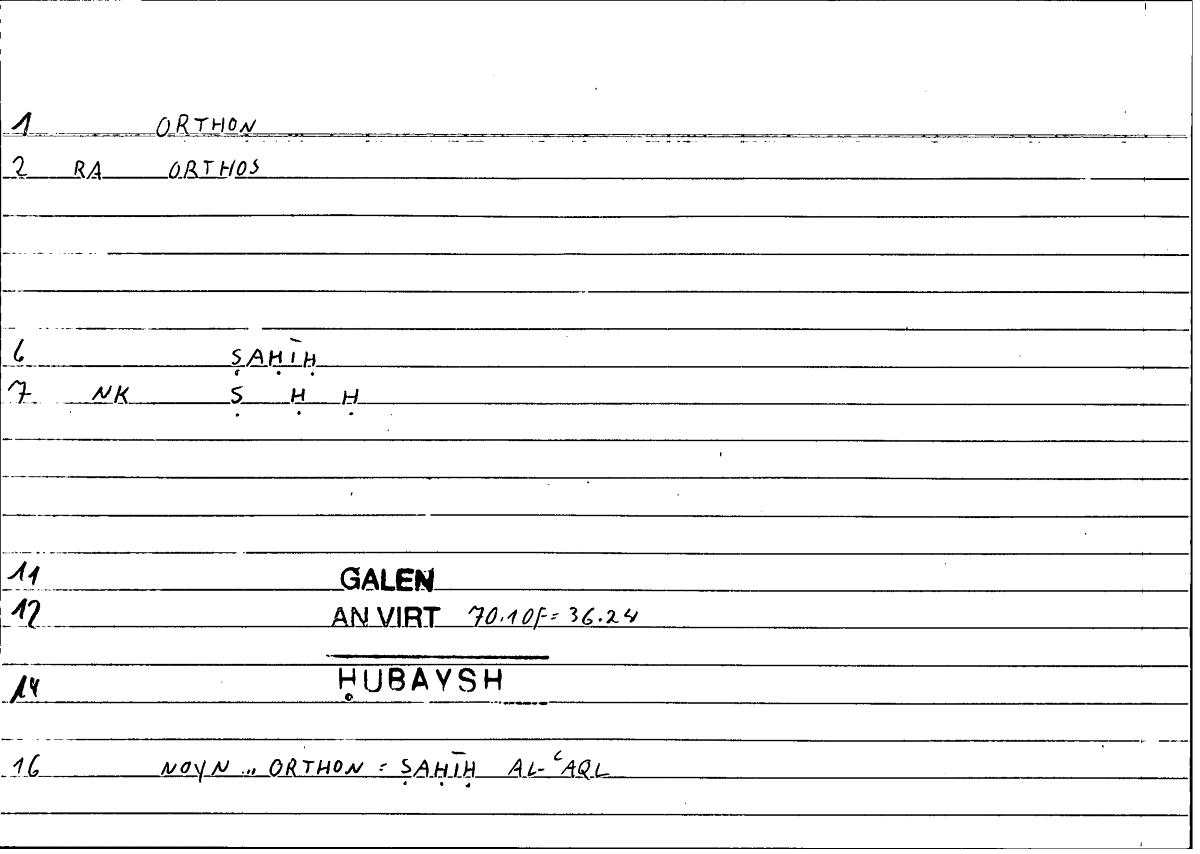 1 ORTHON
2 RA ORTHOS
6 ṢAḤĪḤ
7 NK Ṣ Ḥ Ḥ
11 GALEN
12 AN VIRT 70.10F = 36.24
14 ḤUBAYSH
16 NOYN ... ORTHON = ṢAḤĪḤ AL-ʿAQL